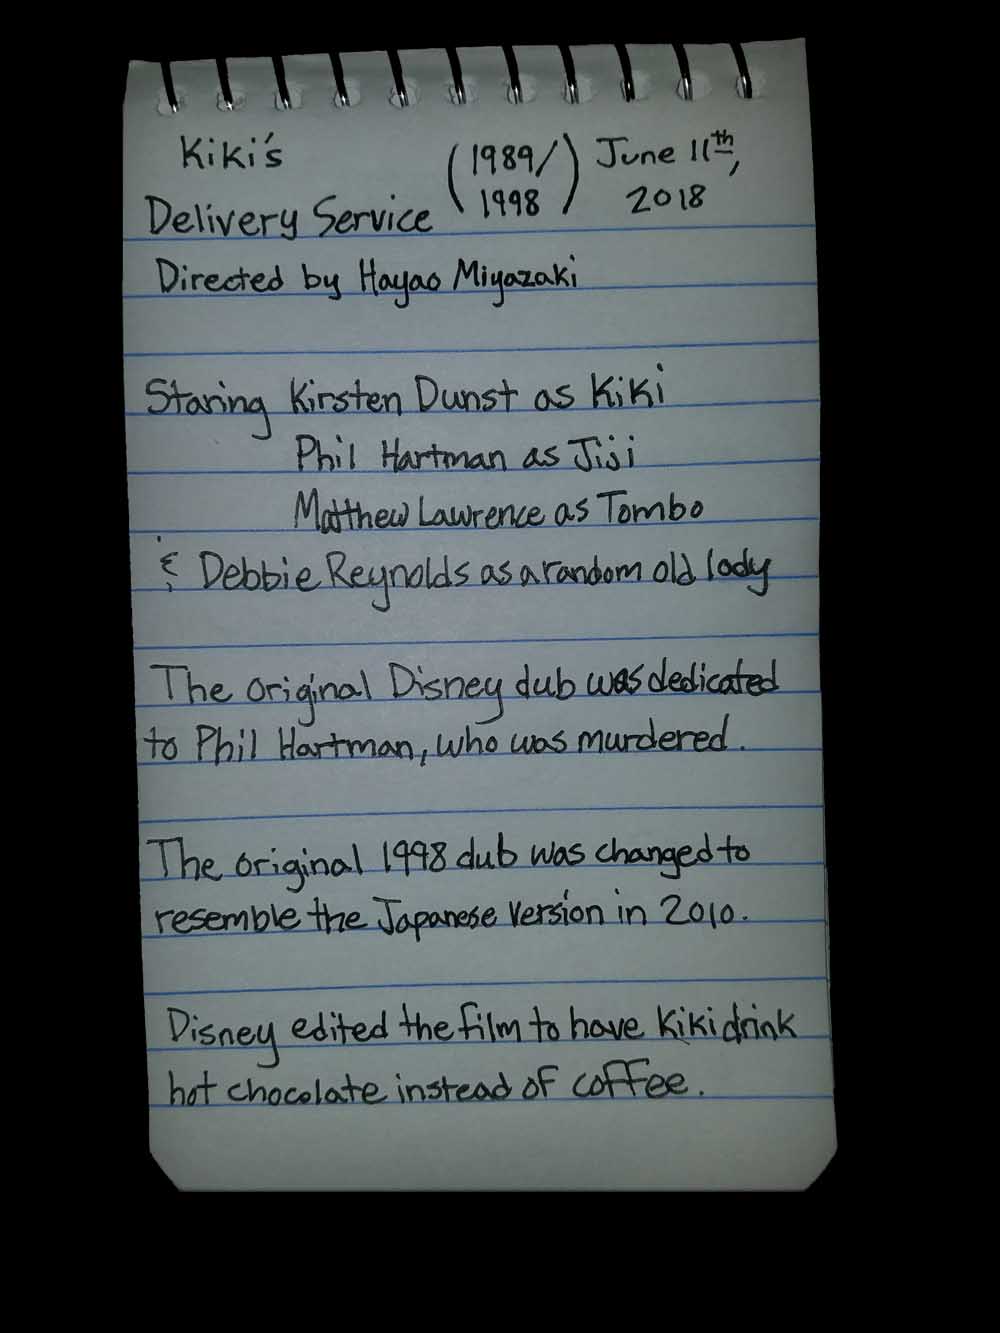 Kiki's (1989/ June 11th,
Delivery Service 1998) 2018
Directed by Hayao Miyazaki
Staring Kirsten Dunst as Kiki
Phil Hartman as Jiji
Matthew Lawrence as Tombo
& Debbie Reynolds as a random old lady
The original Disney dub was dedicated
to Phil Hartman, who was murdered.
The original 1998 dub was changed to
resemble the Japanese version in 2010.
Disney edited the film to have Kiki drink
hot chocolate instead of coffee.